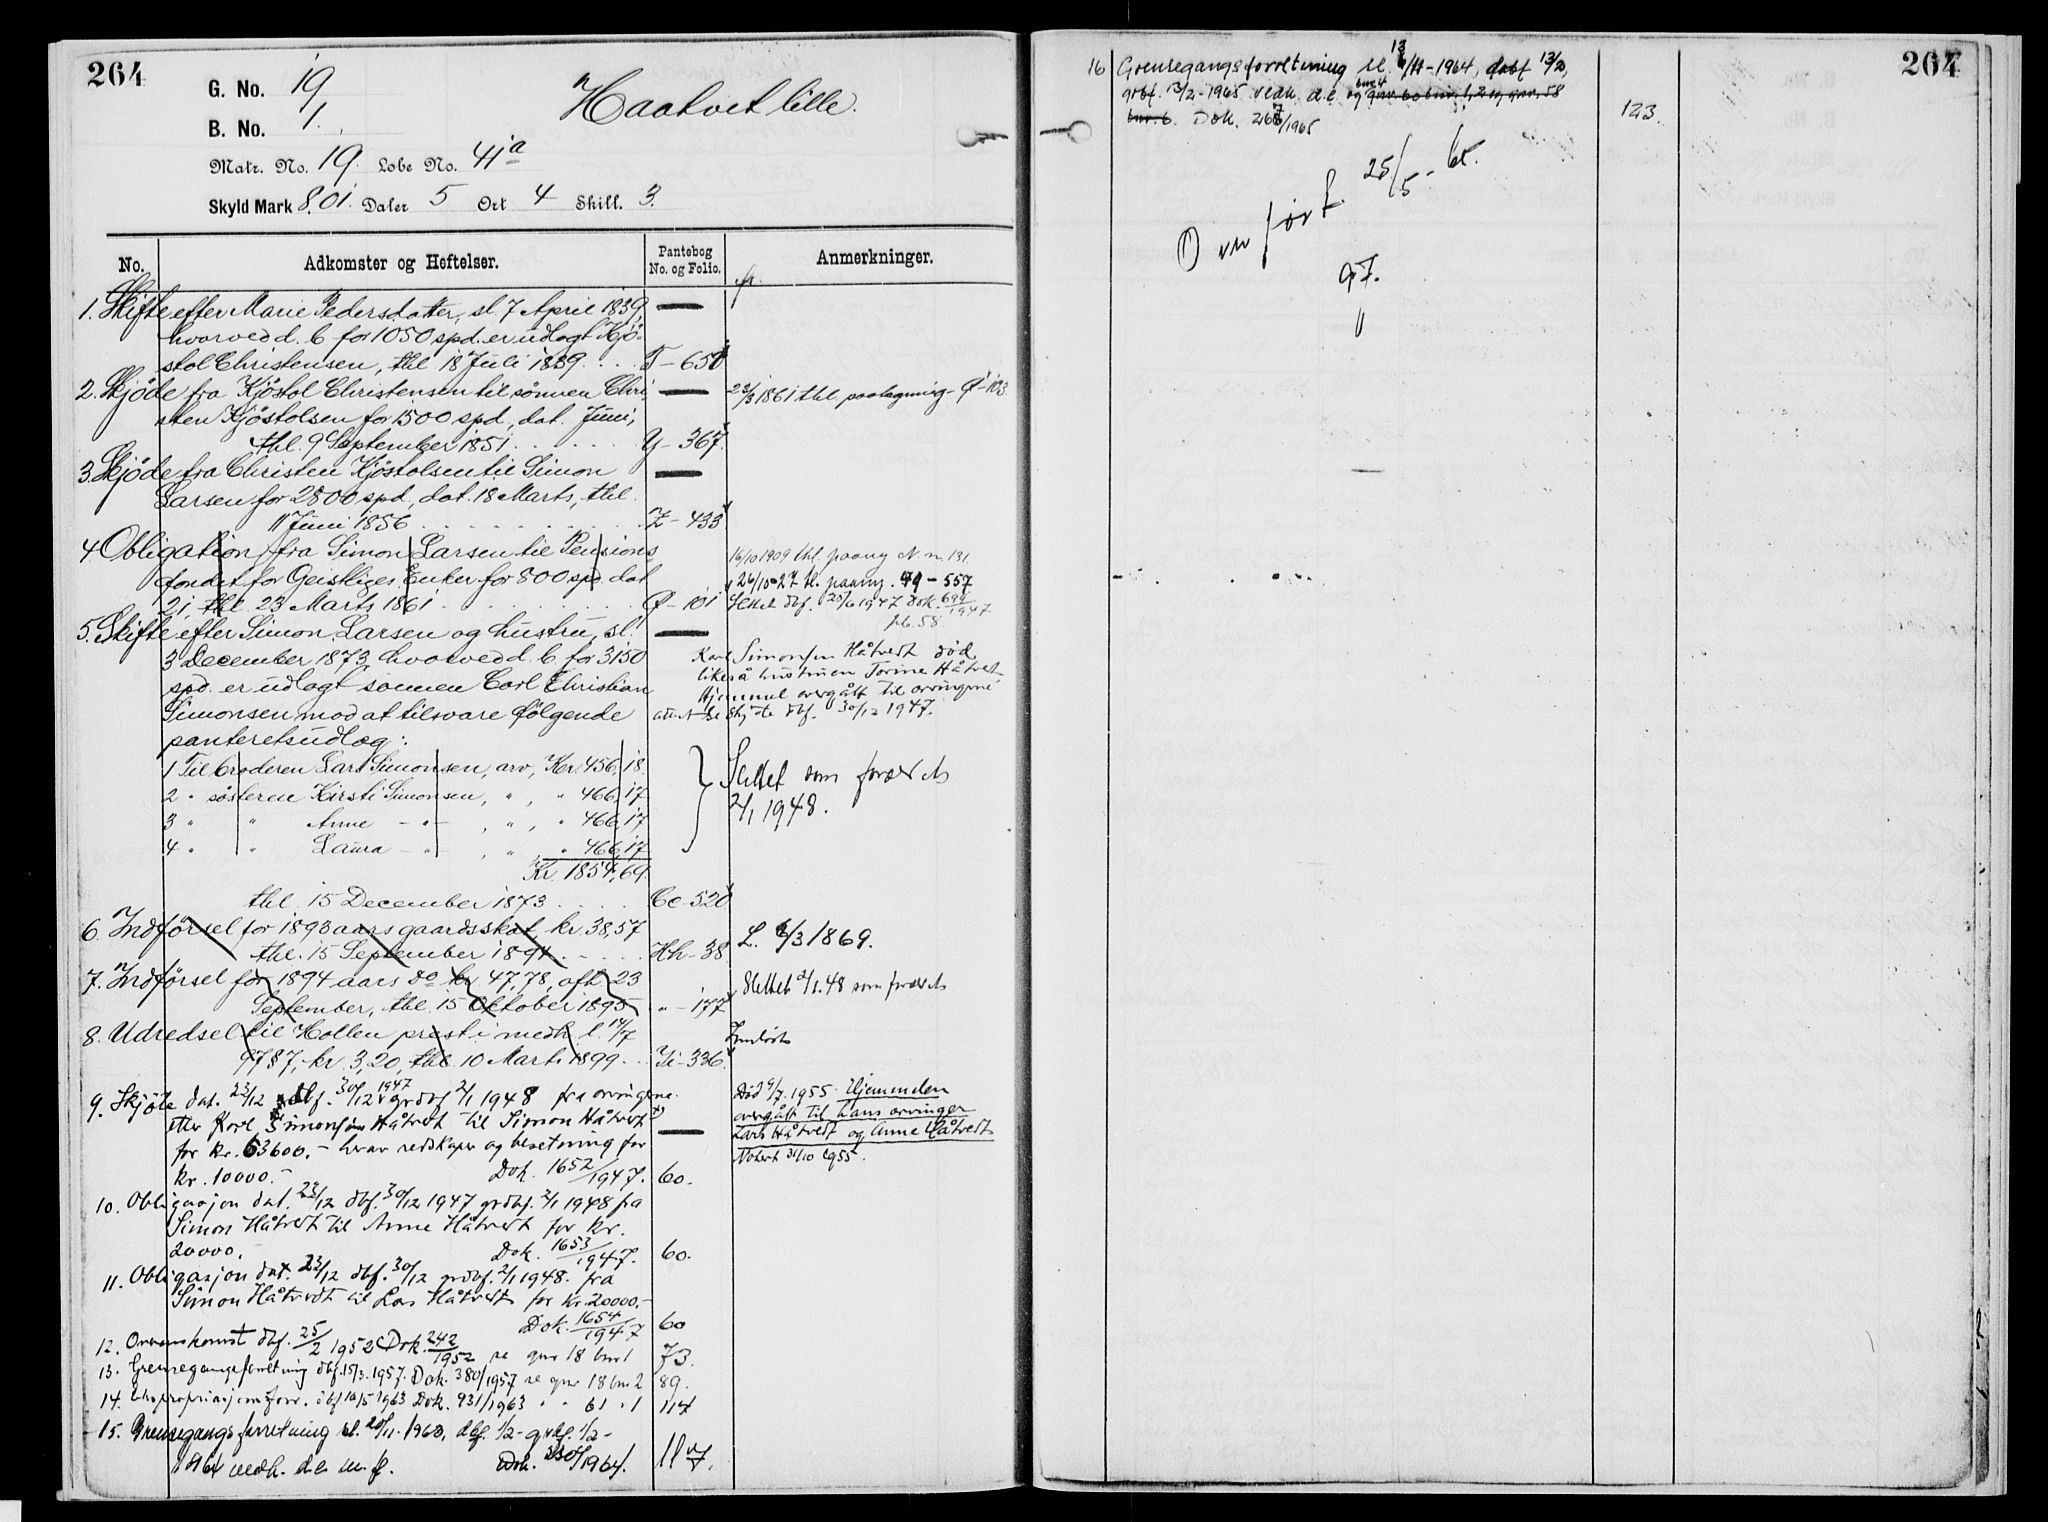 264
G. No. 19
B. No. 1.
Haatvet lille.
Matr. No. 19. Løbe No. 41a
Skyld Mark 8.01. Daler 5 Ort 4 Skill. 3.
No. Adkomster og Heftelser. Pantebog No. og Folio. Anmerkninger.
1. Skifte efter Marie Pedersdatter, sl. 7 April 1839,
hvorved d. b. for 1050 spd. er udlagt Kjö-
stol Christensen, thl. 18 Juli 1839. . . . T - 651
2. Skjöde fra Kjöstol Christensen til sönnen Chri- 23/3 1861 thl. paategning - Ø - 103.
sten Kjöstolsen for 1500 spd., dat. Juni,
thl. 9 September 1851 . . . . . Y - 367.
3. Skjöde fra Christen Kjöstolsen til Simon
Larsen for 2800 spd., dat. 18 Marts, thl.
11 Juni 1856 . . . . . . Z - 433
4 Obligation fra Simon Larsen til Pensions- 16/10 1909 thl. paany N n. 131.
fondet for Geistliges Enker for 800 spd. dat. 26/10-27 tl. paany. 49 - 557
21, thl. 23 Marts 1861 . . . . . . Ø - 101 Slettet dbf. 25/6 1947 Dok. 699/1947
pb. 58
5. Skifte efter Simon Larsen og hustru, sl.
3 December 1873, hvorved d. b. for 3150 Karl Simonsen Håtvedt död
spd. er udlagt sönnen Carl Christian likeså hustruen Torine Håtvedt
Simonsen mod at tilsvare følgende Hjemmel overgått til arvingene
panteretsudlæg: att. se Skjöte dbf. 30/12 1947.
1 Til broderen Lars Simonsen, arv, Kr. 456,18.
2 " søsteren Kirsti Simonsen, " , " 466,17 Slettet som foreldet
3 " " Anne - " - , " , " 466,17 2/1 1948.
4 " " Laura - " - , " " 466,17
Kr. 1854,69.
thl. 15 December 1873 . . . . Cc - 520
6. Indförsel for 1893 aars gaardsskat, kr. 38,57
thl. 15 September 1894 . . . . . Hh - 38 L. 6/3 1869.
7. Indförsel for 1894 aars do kr 47,78, afh. 23 Slettet 2/1.48 som foreldet
September, thl. 15 Oktober 1895 " - 177
8. Udredsel til Hollen prest i medh. l. 14/7
9787, kr. 3,20, thl. 10 Marts 1899. . . Ii - 336. Innløst
9. Skjöte dat. 23/12 dbf. 30/12 1947 grdbf. 2/1 1948 fra arvingene Död 9/7. 1955. Hjemmelen
etter Karl Simonsen Håtvedt til Simon Håtvedt overgått til hans arvinger
for kr. 63600.- herav redskaper og besetning for Lars Håtvedt og Anne Håtvedt
kr. 10000.- Dok. 1652/1947. 60. Notert 31/10 1955.
10. Obligasjon dat. 23/12 dbf. 30/12 1947 grdbf. 2/1 1948 fra
Simon Håtvedt til Anne Håtvedt for kr.
20000.- Dok. 1653/1947. 60.
11. Obligasjon dat. 23/12 dbf. 30/12 grdbf. 2/1 1948. fra
Simon Håtvedt til Lars Håtvedt for kr. 20000.-
Dok. 1654/1947 60
12. Overenskomst dbf. 25/2 1952 Dok. 242/1952 se gnr 18 bnr 1 73.
13. Grensegangsforretning dbf. 15/3. 1957. Dok. 380/1957 se gnr 18 bnr 2 89.
14. Ekspropriasjonsforr. dbf. 10/5 1963 Dok. 931/1963 " " 61 " 1 114
15. Grensegangsforretning sl. 20/11-1963, dbf. 1/2 - grdbf. 1/2 -
1964 vedk. d.e. m. fl. Dok. /1964. 117.
264
16 Grensegangsforretning sl. 13/11-1964, dabf 13/2,
grbf. 13/2-1965 vedk. d.e. og gnr. 60 bnr. 1, 2 og gnr. 58
bnr. 6. Dok. /1965 123.
Overført 25/5 - 65.